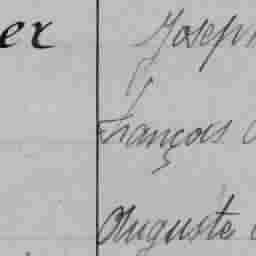 er Joseph
François
Auguste